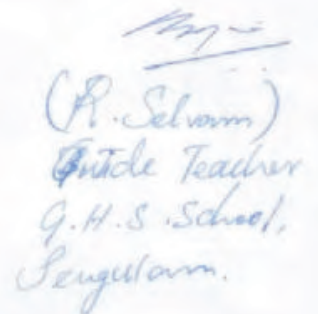 (R. Selvam)
Guide Teacher
G.H.S. School,
Sengulam.